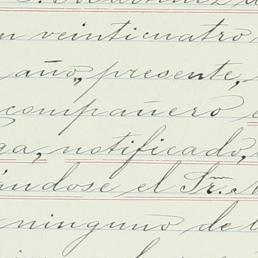 n veinticuatro
año, presente,
compañero e
ga, notificado,
ándose el Sr. A
ninguno de l